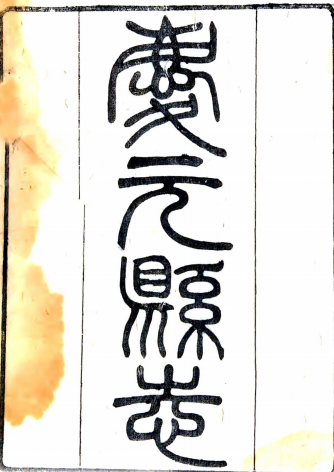 慶元縣志